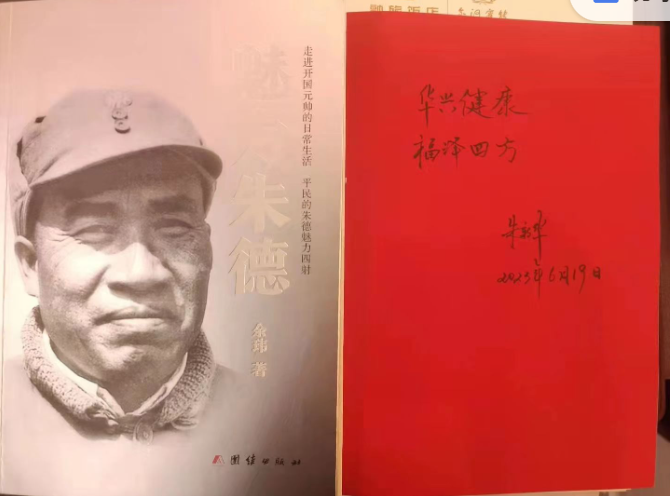 魅力朱德
走进开国元帅的日常生活 平民的朱德魅力四射
余玮 著
团结出版社
华兴健康
福泽四方
2023年6月19日